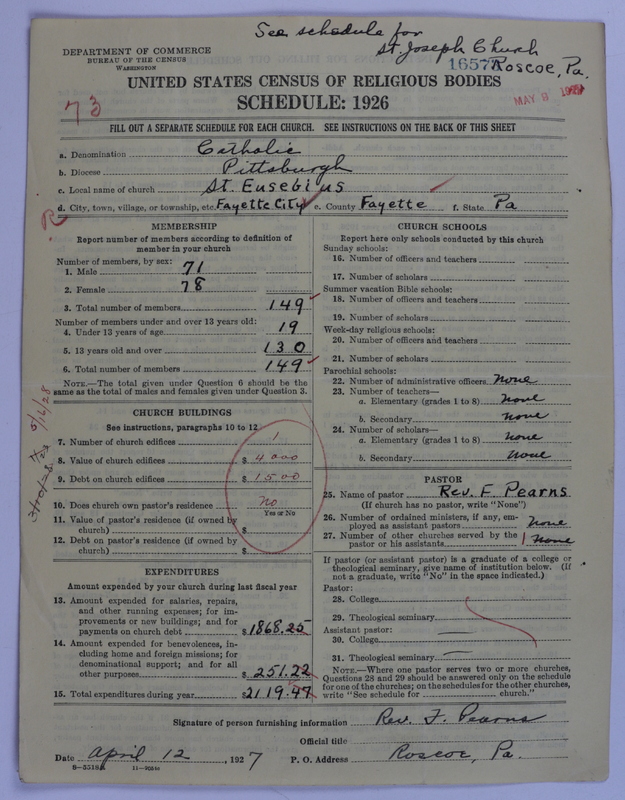 See schedule for
St. Joseph Church
Roscoe, Pa.
DEPARTMENT OF COMMERCE
BUREAU OF THE CENSUS
WASHINGTON
16577
MAY 9
UNITED STATES CENSUS OF RELIGIOUS BODIES
SCHEDULE: 1926
73
FILL OUT A SEPARATE SCHEDULE FOR EACH CHURCH. SEE INSTRUCTIONS ON THE BACK OF THIS SHEET
a. Denomination Catholic
b. Diocese Pittsburgh
c. Local name of church St. Eusebius
d. City, town, village, or township, etc. Fayette City e. County Fayette f. State Pa
R
MEMBERSHIP
Report number of members according to definition of
member in your church
Number of members, by sex:
1. Male 71
2. Female 78
3. Total number of members 149
Number of members under and over 13 years old:
4. Under 13 years of age 19
5. 13 years old and over 130
6. Total number of members 149
NOTE.—The total given under Question 6 should be the
same as the total of males and females given under Question 3.
CHURCH BUILDINGS
See instructions, paragraphs 10 to 12
7. Number of church edifices 1
8. Value of church edifices $ 4000
9. Debt on church edifices $ 15.00
10. Does church own pastor's residence No
Yes or No
11. Value of pastor's residence (if owned by
church) $
12. Debt on pastor's residence (if owned by
church) $
5/16/28
EXPENDITURES
Amount expended by your church during last fiscal year
13. Amount expended for salaries, repairs,
and other running expenses; for im-
provements or new buildings; and for
payments on church debt $ 1868.25
14. Amount expended for benevolences, in-
cluding home and foreign missions; for
denominational support; and for all
other purposes $ 251.22
15. Total expenditures during year $ 2119.47
CHURCH SCHOOLS
Report here only schools conducted by this church
Sunday schools:
16. Number of officers and teachers
17. Number of scholars
Summer vacation Bible schools:
18. Number of officers and teachers
19. Number of scholars
Week-day religious schools:
20. Number of officers and teachers
21. Number of scholars
Parochial schools:
22. Number of administrative officers none
23. Number of teachers—
a. Elementary (grades 1 to 8) none
b. Secondary none
24. Number of scholars—
a. Elementary (grades 1 to 8) none
b. Secondary none
PASTOR
25. Name of pastor Rev. F. Pearns
(If church has no pastor, write "None")
26. Number of ordained ministers, if any, em-
ployed as assistant pastors none
27. Number of other churches served by the
pastor or his assistants 1 none
If pastor (or assistant pastor) is a graduate of a college or
theological seminary, give name of institution below. (If
not a graduate, write "No" in the space indicated.)
Pastor:
28. College
29. Theological seminary
Assistant pastor:
30. College
31. Theological seminary
NOTE.—Where one pastor serves two or more churches,
Questions 28 and 29 should be answered only on the schedule
for one of the churches; on the schedules for the other churches,
write "See schedule for church."
Signature of person furnishing information Rev. F. Pearns
Official title
Date April 12, 1927 P. O. Address Roscoe, Pa.